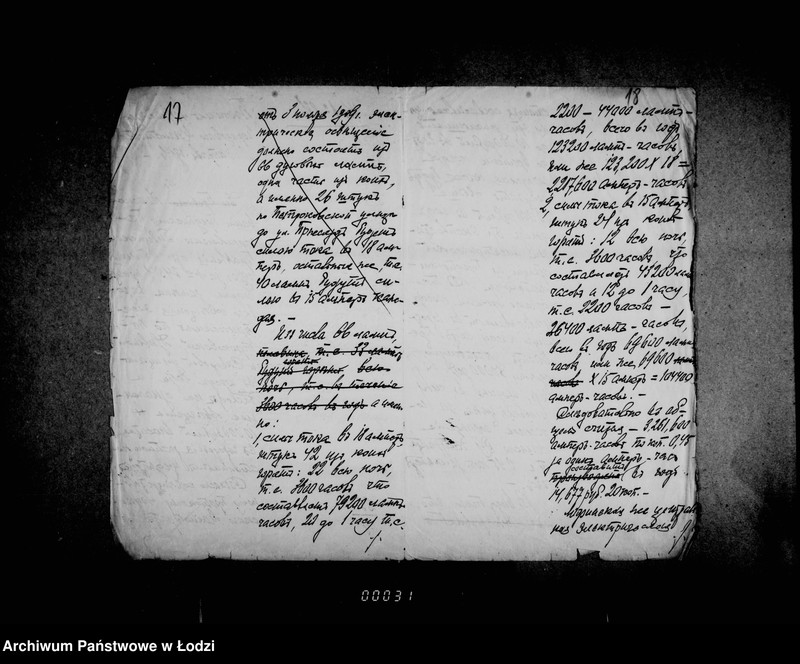 17
отъ 8 ноября 1909 г. элек-
трическое освѣщеніе
должно состоять изъ
66 дуговыхъ лампъ,
одна часть изъ коихъ,
а именно 26 штукъ
по Петроковской улицѣ
до ул. будутъ
силою тока въ 18 ам-
перъ, остальныя же, т.е.
40 лампъ будутъ си-
лою въ 15 амперъ каж-
дая. —
Изъ числа 66 лампъ,
половина, т.е. 33 лампы
будутъ горѣть всю
ночь, т.е. въ теченіе
3600 часовъ въ годъ а имен-
но:
1, силы тока въ 18 амперъ
штукъ 42 изъ коихъ
горятъ: 22 всю ночь,
т.е. 3600 часовъ что
составляетъ 79200 лампъ-
часовъ, 20 до 1 часу т.е.
./.
18
2200 — 44000 лампъ-
часовъ, всего въ годъ
123200 лампъ-часовъ,
или же 123,200 X 18 =
2217,600 амперъ-часовъ
2, силы тока въ 15 амперъ
штукъ 24 изъ коихъ
горятъ: 12 всю ночь,
т.е. 3600 часовъ что
составляетъ 43200 ламп
часовъ и 12 до 1 часу,
т.е. 2200 часовъ —
26400 лампъ-часовъ,
всего въ годъ 69600 ламп
часовъ, или же, 69600 ламп
часовъ X 15 амперъ = 1044000
амперъ-часовъ. —
Слѣдовательно въ об-
щемъ считая — 3261,600
амперъ-часовъ по коп. 0,45
за одинъ амперъ-часъ
составитъ
въ годъ
14,677 руб. 20 коп. —
же
ная электрическая
./.
00031
Archiwum Państwowe w Łodzi